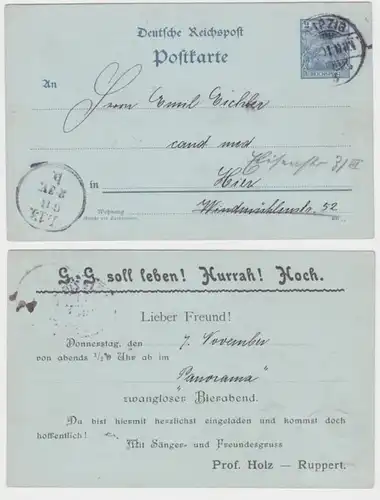 Deutsche Reichspost
Postkarte
An
Herrn Emil Eichler
cand med
in Hier
Wohnung
Windmühlenstr. 52
G.-G. soll leben! Hurrah! Hoch.
Lieber Freund!
Donnerstag, den 7. November
von abends 1/2 9 Uhr ab im
"Panorama"
zwangloser Bierabend.
Du bist hiermit herzlichst eingeladen und kommst doch
hoffentlich!
Mit Sänger- und Freundesgruss
Prof. Holz — Ruppert.